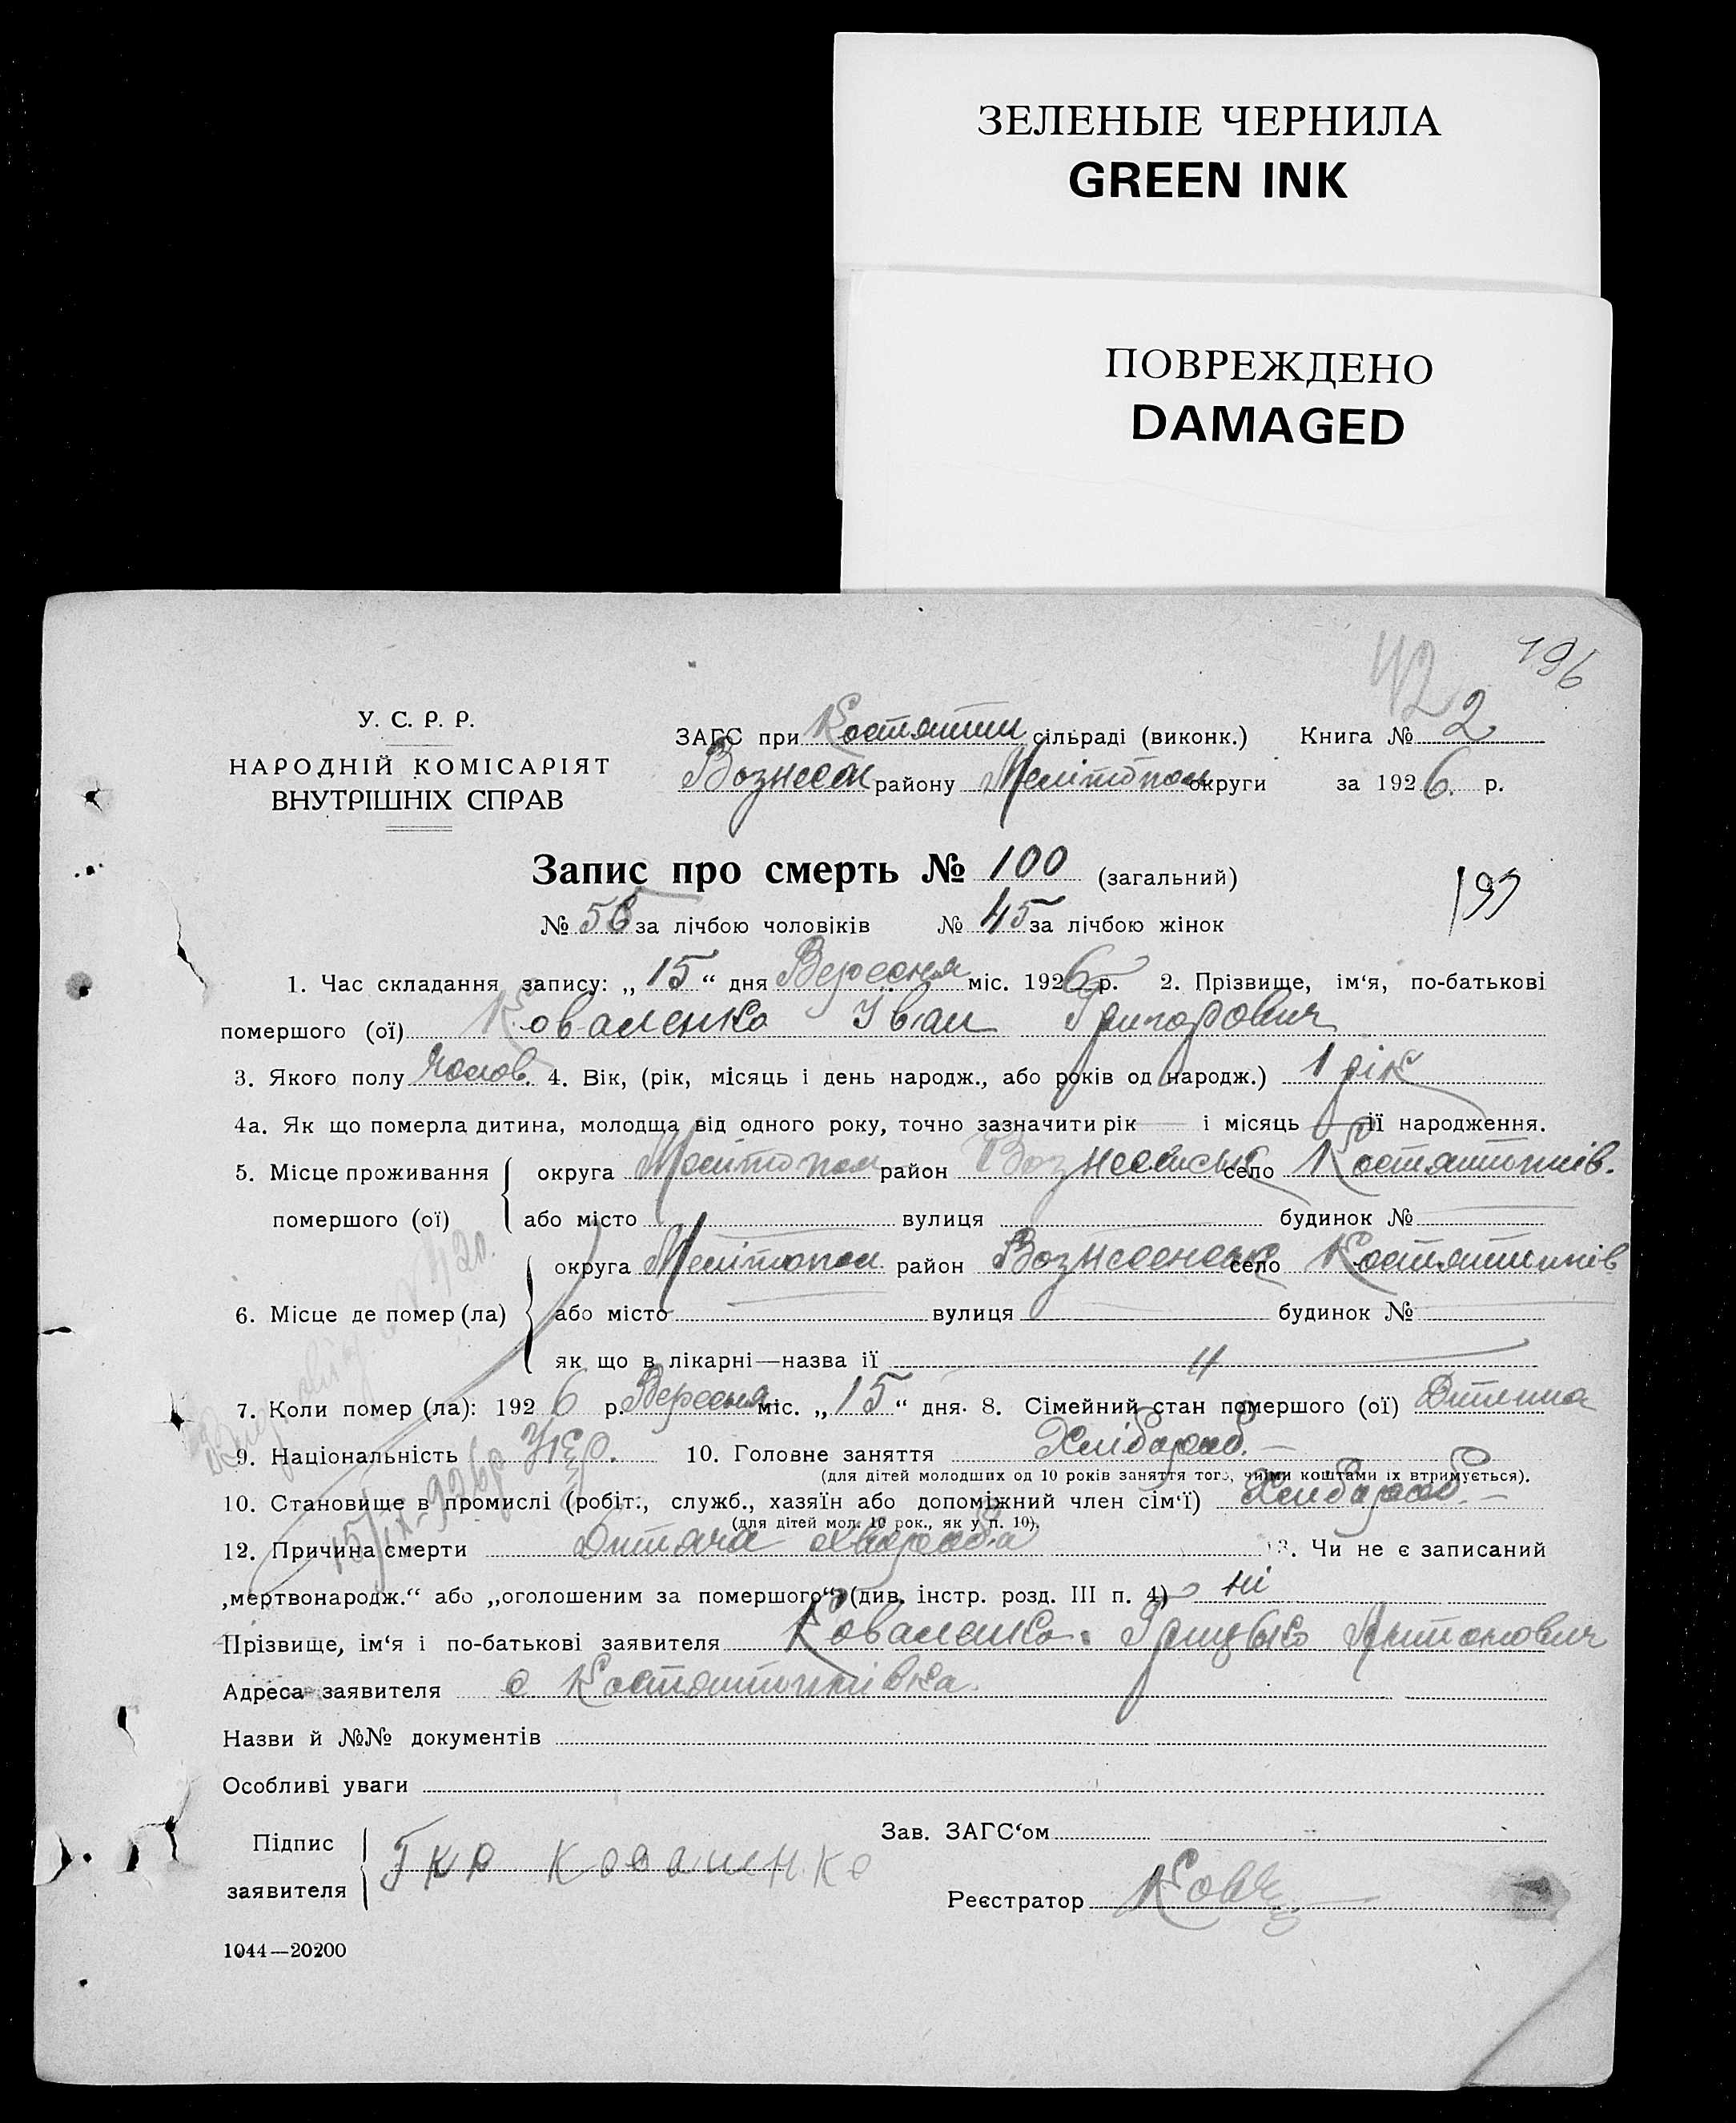 ЗЕЛЕНЫЕ ЧЕРНИЛА
GREEN INK
ПОВРЕЖДЕНО
DAMAGED
196
42
У. С. Р. Р.
НАРОДНІЙ КОМІСАРІЯТ
ВНУТРІШНІХ СПРАВ
ЗАГС при Костянтин сільраді (виконк.) Книга № 2
Вознесен району Мелітопол округи за 1926 р.
Запис про смерть № 100 (загальний)
№ 56 за лічбою чоловіків № 45 за лічбою жінок
199
1. Час складання запису: „15“ дня Вересня міс. 1926 р. 2. Прізвище, ім‘я, по-батькові
помершого (ої) Коваленко Іван Григорович
3. Якого полу чолов. 4. Вік, (рік, місяць і день народж., або років од народж.) 1 рік
4а. Як що померла дитина, молодща від одного року, точно зазначити рік — і місяць — її народження.
5. Місце проживання помершого (ої) округа Мелітопол район Вознесенськ село Костянтинів.
або місто вулиця будинок №
6. Місце де помер (ла) округа Мелітопол район Вознесенськ село Костянтинів
або місто вулиця будинок №
як що в лікарні—назва ії "
7. Коли помер (ла): 1926 р. Вересня міс. „15“ дня. 8. Сімейний стан помершого (ої) Дитина
9. Національність Укр. 10. Головне заняття Хлібороб. —
(для дітей молодших од 10 років заняття того, чиїми коштами їх втримується).
10. Становище в промислі (робіт., служб., хазяїн або допоміжний член сім‘ї) Хлибороб. —
(для дітей мол. 10 рок., як у п. 10).
12. Причина смерти Дитяча хвороба 13. Чи не є записаний
„мертвонародж.“ або „оголошеним за помершого“? (див. інстр. розд. III п. 4) ні
Прізвище, ім‘я і по-батькові заявителя Коваленко Грицько Антонович
Адреса заявителя с Костянтинівка
Назви й №№ документів
Особливі уваги
Підпис заявителя Гкр Коваленко
Зав. ЗАГС‘ом
Реєстратор
1044—20200